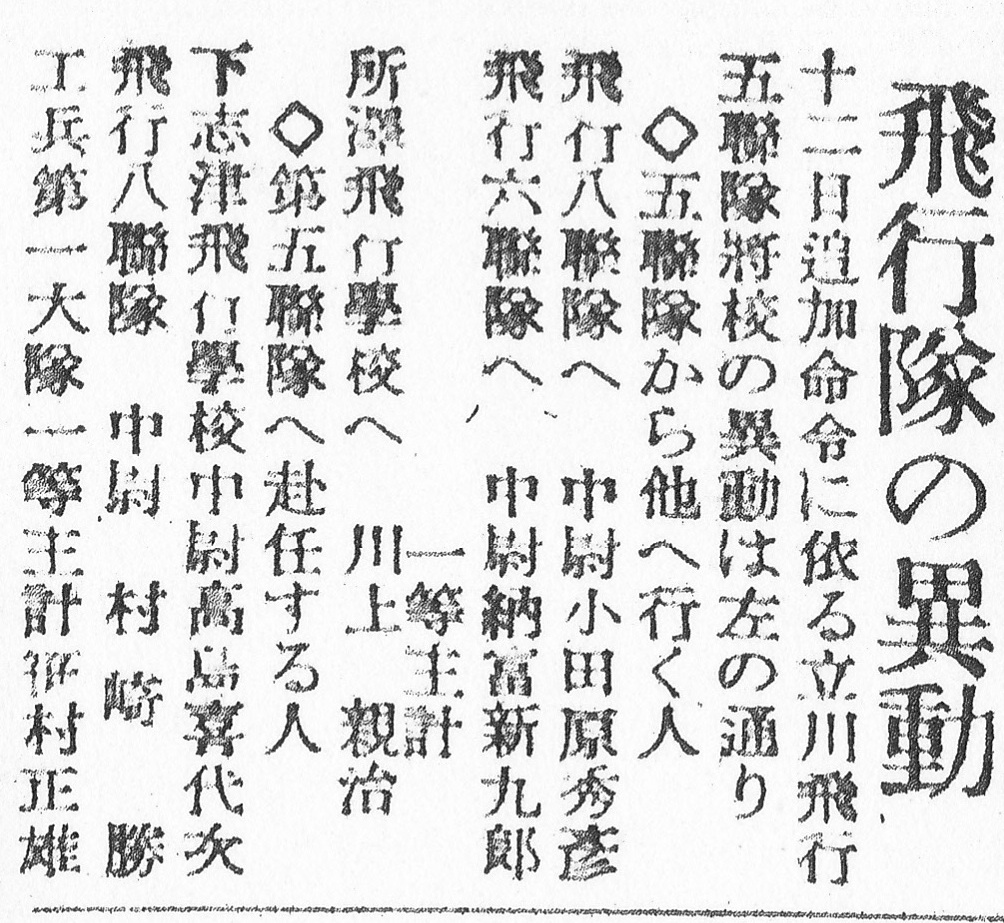 飛行隊の異動
十二日追加命令に依る立川飛行
五聯隊將校の異動は左の通り
◇五聯隊から他へ行く人
飛行八聯隊へ　中尉小田原秀彦
飛行六聯隊へ　中尉納富新九郎
一等主計
所澤飛行學校へ　川上　親治
◇第五聯隊へ赴任する人
下志津飛行學校中尉高島喜代次
飛行八聯隊　中尉　村崎　勝
工兵第一大隊一等主計 村正雄